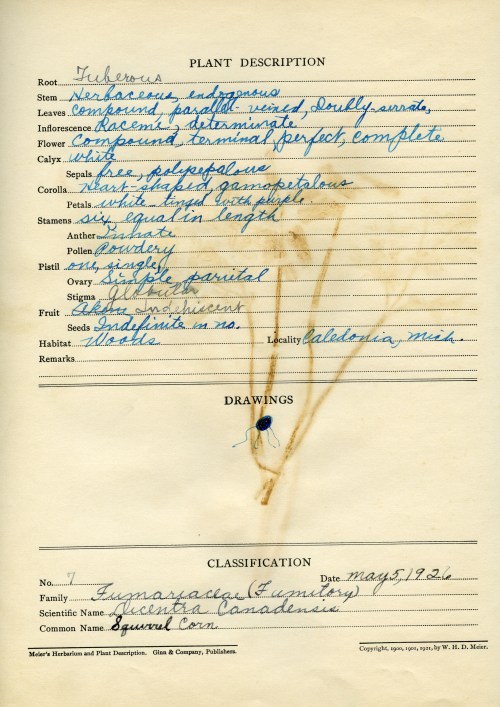 PLANT DESCRIPTION
Root Tuberous
Stem Herbaceous, endogenous
Leaves compound, parallel-veined, Doubly-serrate,
Inflorescence Raceme, determinate
Flower Compound, terminal, perfect, complete
Calyx white
Sepals free, polysepalous
Corolla Heart-shaped, gamopetalous
Petals white tinged with purple.
Stamens six equal in length
Anther Innate
Pollen Powdery
Pistil one, single,
Ovary Simple, parital
Stigma Globular
Fruit Indehiscent
Seeds Indefinite in no.
Habitat Woods Locality Caledonia, Mich.
Remarks
DRAWINGS
CLASSIFICATION
No. 7 Date May 5, 1926
Family Fumariaceae (Fumitory)
Scientific Name Dicentra Canadensis
Common Name Squirrel Corn
Meier's Herbarium and Plant Description. Ginn & Company, Publishers. Copyright, 1900, 1901, 1921, by W. H. D. Meier.